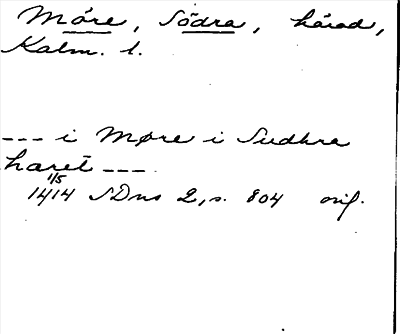 Möre, Södra, härad,
Kalm. l.
--- i Møre i Sudhra
haret ---
1/5
1414 SDns 2, s. 804 orig.